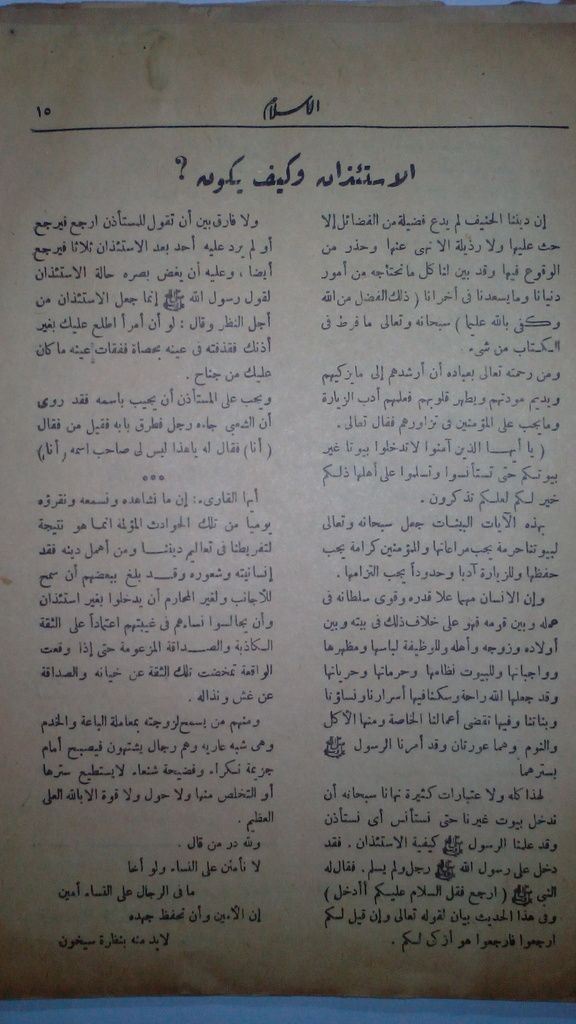 الاسلام
١٥
الاستئذان وكيف يكون ؟
إن ديننا الحنيف لم يدع فضيلة من الفضائل إلا
حث عليها ولا رذيلة الا نهى عنها وحذر من
الوقوع فيها وقد بين لنا كل ما نحتاجه من أمور
دنيانا وما يسعدنا فى أخرانا ( ذلك الفضل من الله
وكفى بالله عليما ) سبحانه وتعالى ما فرط فى
الكتاب من شىء .
ومن رحمته تعالى بعباده أن أرشدهم إلى ما يزكيهم
ويديم مودتهم ويطهر قلوبهم فعلمهم أدب الزيارة
وما يجب على المؤمنين فى تزاورهم فقال تعالى .
( يا أيها الذين آمنوا لا تدخلوا بيوتا غير
بيوتكم حتى تستأنسوا وتسلموا على أهلها ذلكم
خير لكم لعلكم تذكرون .
بهذه الآيات البينات جعل سبحانه وتعالى
لبيوتنا حرمة يجب مراعاتها وللمؤمنين كرامة يجب
حفظها وللزيارة آدبا وحدوداً يجب التزامها .
وإن الانسان مهما علا قدره وقوى سلطانه فى
عمله وبين قومه فهو على خلاف ذلك فى بيته وبين
أولاده وزوجه وأهله وللوظيفة لباسها ومظهرها
وواجباتها وللبيوت نظامها وحرماتها وحرياتها
وقد جعلها الله راحة وسكنا فيها أسرارنا ونساؤنا
وبناتنا وفيها نقضى أعمالنا الخاصة ومنها الأكل
والنوم وهما عورتان وقد أمرنا الرسول ﷺ
بسترهما
لهذا كله ولا عتبارات كثيرة نهانا سبحانه أن
ندخل بيوت غيرنا حتى نستأنس أى نستأذن
وقد علمنا الرسول ﷺ كيفية الاستئذان . فقد
دخل على رسول الله ﷺ رجل ولم يسلم . فقال له
النبى ﷺ ( ارجع فقل السلام عليكم أأدخل )
وفى هذا الحديث بيان لقوله تعالى وإن قيل لكم
ارجعوا فارجعوا هو أزكى لكم .
ولا فارق بين أن تقول للمستأذن ارجع فيرجع
أو لم يرد عليه أحد بعد الاستئذان ثلاثا فيرجع
أيضا ، وعليه أن يغض بصره حالة الاستئذان
لقول رسول الله ﷺ إنما جعل الاستئذان من
أجل النظر وقال : لو أن أمرأ اطلع عليك بغير
أذنك فقذفته فى عينه بحصاة ففقأت عينه ما كان
عليك من جناح .
ويجب على المستأذن أن يجيب باسمه فقد روى
أن الشعبى جاءه رجل فطرق بابه فقيل من فقال
( أنا ) فقال له يا هذا ليس لى صاحب اسمه ( أنا )
* * *
أيها القارىء : إن ما نشاهده ونسمعه ونقرؤه
يومياً من تلك الحوادث المؤلمة انما هو نتيجة
لتفريطنا فى تعاليم ديننا ومن أهمل دينه فقد
إنسانيته وشعوره وقد بلغ ببعضهم أن سمح
للأجانب ولغير المحارم أن يدخلوا بغير استئذان
وأن يجالسوا نساءهم فى غيبتهم اعتماداً على الثقة
الكاذبة والصداقة المزعومة حتى إذا وقعت
الواقعة تمخضت تلك الثقة عن خيانه والصداقة
عن غش ونذاله .
ومنهم من يسمح لزوجته بمعاملة الباعة والخدم
وهى شبه عاريه وهم رجال يشتهون فيصبح أمام
جريمة نكراء وفضيحة شنعاء لا يستطيع سترها
أو التخلص منها ولا حول ولا قوة الا بالله العلى
العظيم .
ولله در من قال .
لا نأمنن على النساء ولو أخا
ما فى الرجال على النساء أمين
إن الأمين وأن تحفظ جهده
لابد منه بنظارة سيخون